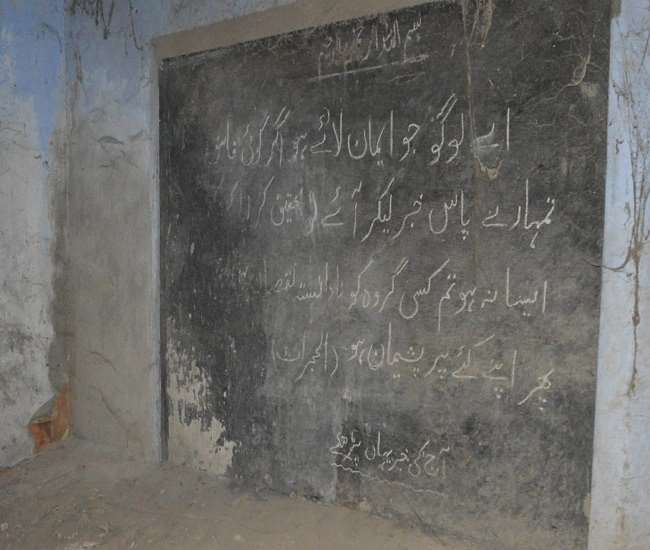 بسم اللہ الرحمن الرحیم
اے لوگو جو ایمان لائے ہو اگر کوئی فاسق
تمہارے پاس خبر لیکر آئے (تحقیق کر لو
ایسا نہ ہو تم کسی گروہ کو نادانستہ
پھر اپنے کئے پر پشیمان ہو (الحجرات)
آج کی خبر یہاں پڑھیے